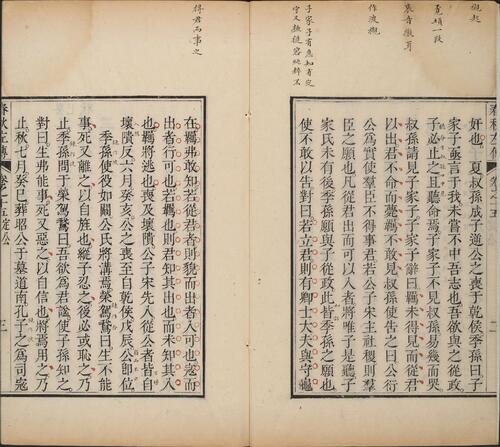 作波襯
奸也夏叔孫成子逆公之喪于乾侯季孫曰子
家子亟言于我未嘗不中吾志也吾欲與之從政
子必止之且聽命焉子家子不見叔孫易幾而哭
叔孫請見子家子子家子辭曰羈未得見而從君
以出君不命而薨羈不敢見叔孫使告之曰公衍
公爲實使羣臣不得事君若公子宋主社稷則羣
臣之願也凡從君出而可以入者將唯子是聽子
家氏未有後季孫願與子從政此皆季孫之願也
使不敢以告對曰若立君則有卿士大夫與守龜
得君而事之
在羈弗敢知若從君者則貌而出者入可也寇而
出者行可也若羈也則君知其出也而未知其入
也羈將逃也喪及壞隤公子宋先入從公者皆自
壞隤反六月癸亥公之喪至自乾侯戊辰公即位
季孫使役如闞公氏將溝焉榮駕鵞曰生不能
事死又離之以自旌也縱子忍之後必或恥之乃
止季孫問于榮駕鵞曰吾欲爲君謚使子孫知之
對曰生弗能事死又惡之以自信也將焉用之乃
止秋七月癸巳葬昭公于墓道南孔子之爲司寇
春秋左傳 定公 三